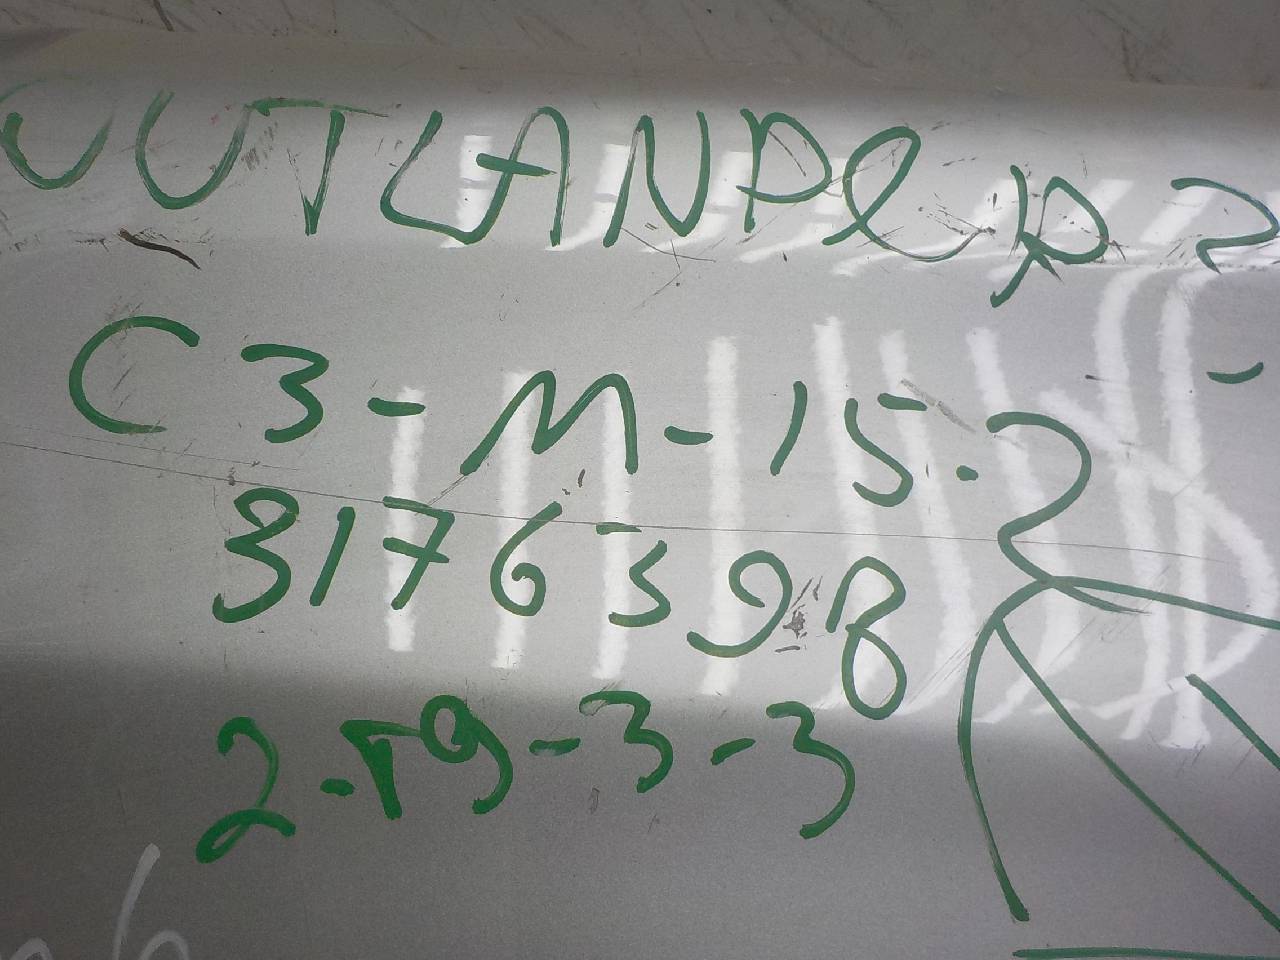 OUTLANDeR 2
C3-M-15.2
3176598
2-19-3-3
6